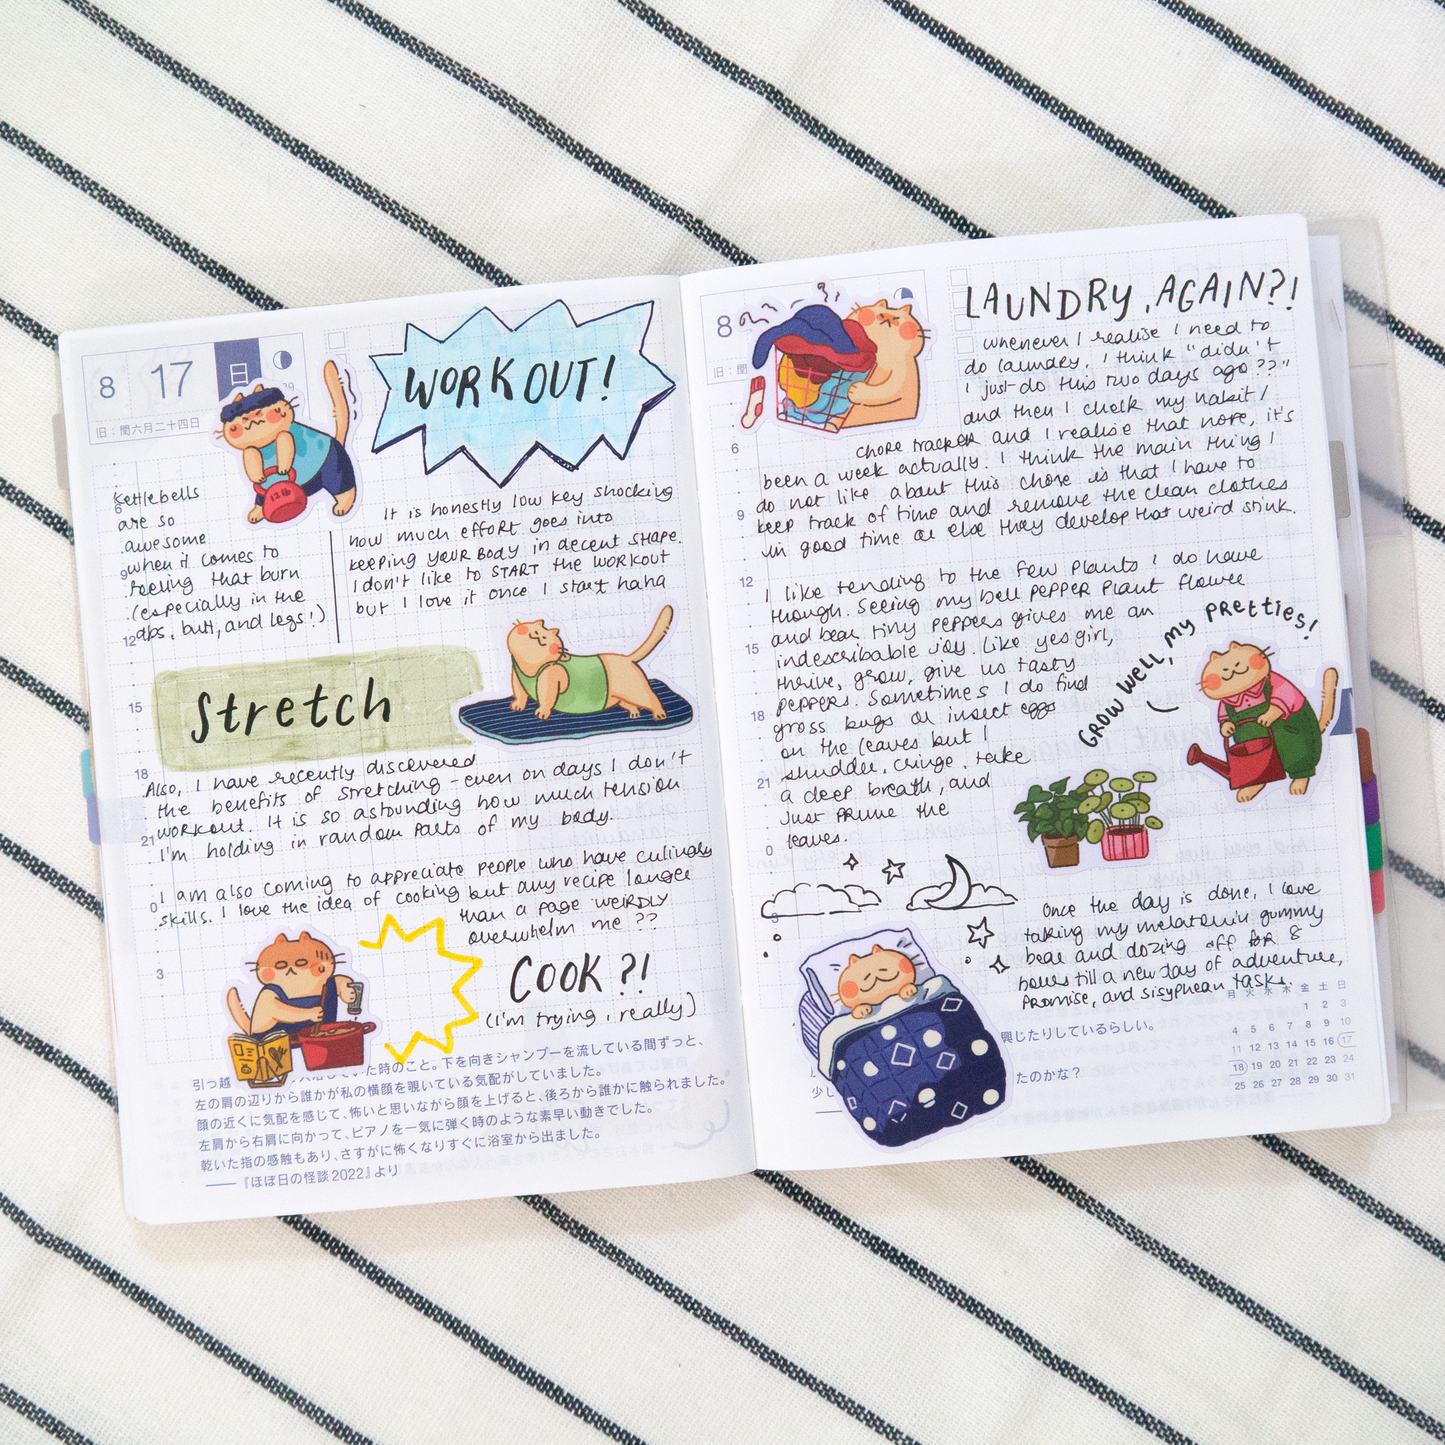 8 17 日
旧：閏六月二十四日
WORKOUT!
12lb
kettlebells
are so
awesome
when it comes to
feeling that burn
(especially in the
abs, butt, and legs!)
It is honestly low key shocking
how much effort goes into
keeping your body in decent shape.
I don't like to START the workout
but I love it once I start haha
Stretch
Also, I have recently discovered
the benefits of stretching - even on days I don't
workout. It is so astounding how much tension
I'm holding in random parts of my body.
I am also coming to appreciate people who have culinary
skills. I love the idea of cooking but any recipe longer
than a page weirdly
overwhelm me ??
COOK?!
(I'm trying, really)
6
9
12
15
18
21
0
3
引っ越
た時のこと。下を向きシャンプーを流している間ずっと、
左の肩の辺りから誰かが私の横顔を覗いている気配がしていました。
顔の近くに気配を感じて、怖いと思いながら顔を上げると、後ろから誰かに触られました。
左肩から右肩に向かって、ピアノを一気に弾く時のような素早い動きでした。
乾いた指の感触もあり、さすがに怖くなりすぐに浴室から出ました。
——『ほぼ日の怪談2022』より
8
旧：閏
LAUNDRY, AGAIN?!
whenever I realise I need to
do laundry, I think "didn't
I just do this two days ago??"
and then I check my habit/
chore tracker and I realise that nope, it's
been a week actually. I think the main thing I
do not like about this chore is that I have to
keep track of time and remove the clean clothes
in good time or else they develop that weird stink.
I like tending to the few plants I do have
though. Seeing my bell pepper plant flower
and bear tiny peppers gives me an
indescribable joy. Like yes girl,
thrive, grow, give us tasty
peppers. Sometimes I do find
gross bugs or insect eggs
on the leaves but I
shudder, cringe, take
a deep breath, and
just prune the
leaves.
GROW WELL, MY PRETTIES!
Once the day is done, I love
taking my melatonin gummy
bear and dozing off for 8
hours till a new day of adventure,
promise, and sisyphean tasks.
6
9
12
15
18
21
0
3
興じたりしているらしい。
たのかな？
少し
月 火 水 木 金 土 日
1 2 3
4 5 6 7 8 9 10
11 12 13 14 15 16 17
18 19 20 21 22 23 24
25 26 27 28 29 30 31